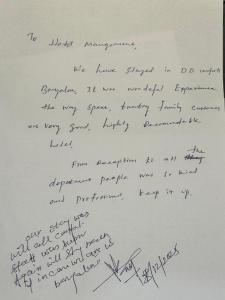 To
Hotel Management,
We have stayed in DD comforts
Bangalore, It was wondeful Experience
the way space, laundry family customers
are very Good, highly Recommendable
hotel.
From Reception to all the
department people was so kind
and Proffesional, keep it up.
our stay was
with all comfort.
again will stay
if in case will come is
bangalore.